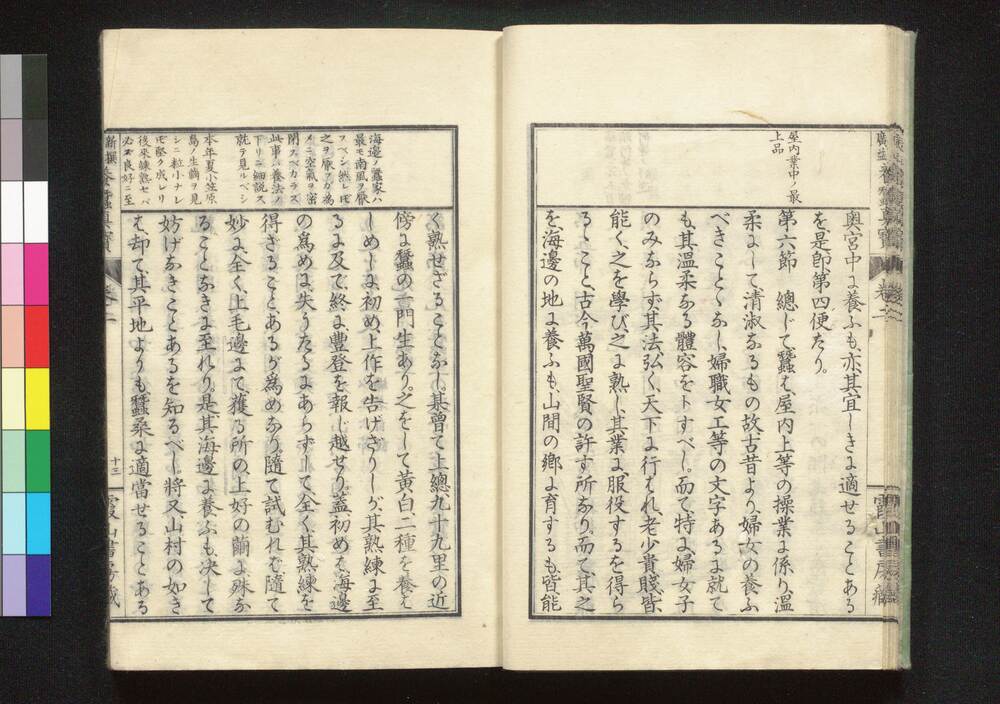 屋内業中ノ最
上品
奥宮中よ養ふも、亦、其宜しきよ適せることある
を、是即、第四便たり。
第六節　總じて、蠶を、屋内上等の操業よ係り、温
柔よして、清淑なるもの故、古昔より、婦女の養ふ
べきことゝなし、婦職、女工等の文字あるよ就て
も、其、温柔なる體容をトすべし。而て、特よ婦女子
のみならず、其法弘く、天下よ行もれ、老少貴賤、皆
能く、之を學び、之よ熟し、其業よ服役するを得ら
ること、古今萬國聖賢の許す所なり。而て、其之
を、海邊の地よ養ふも、山間の郷よ育するも、皆能
海邊ノ蠶家ハ
最モ南風ヲ厭
スベシ然レ𪜈
之ヲ厭フガ為
メニ空氣ヲ密
閉スベカラズ
此事ハ養法ノ
下リニ細説ス
就テ見ルベシ
本年夏小笠原
島ノ生繭ヲ見
シニ粒小ナレ
𪜈堅ク成レリ
後來練熟セバ
必ズ良好ニ至
く、熟せざることなし。某、曾て、上總九十九里の近
傍よ、蠶の一門生あり。之をして、黄白、二種を養そ
しめしよ、初め、上作を告げざりしが、其熟練よ至
るよ及で、終よ、豊登を報じ越せり。蓋初めそ、海邊
の為めよ、失うたるよあらずして、全く、其熟練を
得ざることあるが為めなり。隨て試むれむ、隨て
妙よ、全く、上毛邊よて、獲る所の、上好の繭よ殊な
ることなきよ至れり。是、其海邊よ養ふも、決して
妨げなきことあるを知るべし。將又、山村の如き
そ、却て、其平地よりも、蠶桑よ適當せることある
十三